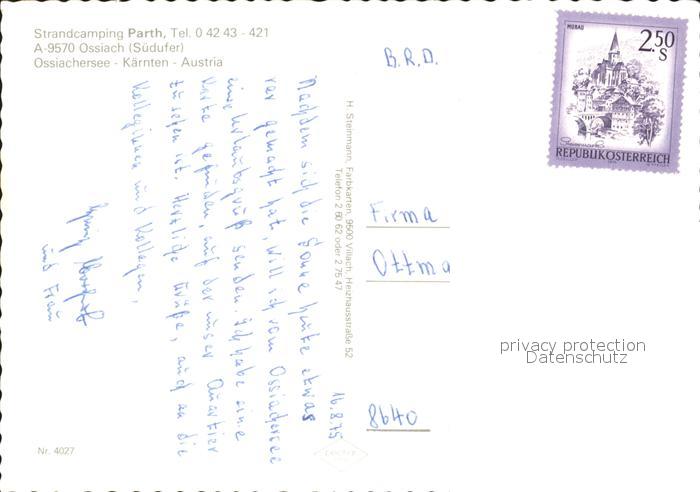 Strandcamping Parth, Tel. 0 42 43 - 421
A-9570 Ossiach (Südufer)
Ossiachersee - Kärnten - Austria
B.R.D.
MURAU
2.50
S
Steiermark
REPUBLIK ÖSTERREICH
16.8.75
Nachdem sich die Sonne heute etwas
rar gemacht hat, will ich vom Ossiachersee
eine Urlaubsgruß senden. Ich habe eine
Karte gefunden, auf der unser Quartier
zu sehen ist. Herzliche Grüße, auch an die
Kolleginnen und Kollegen,
und Frau
H. Steinmann, Farbkarten, 9500 Villach, Heizhausstraße 52
Telefon 2 60 62 oder 2 75 47
Firma
Ottma
8640
privacy protection
Datenschutz
Nr. 4027